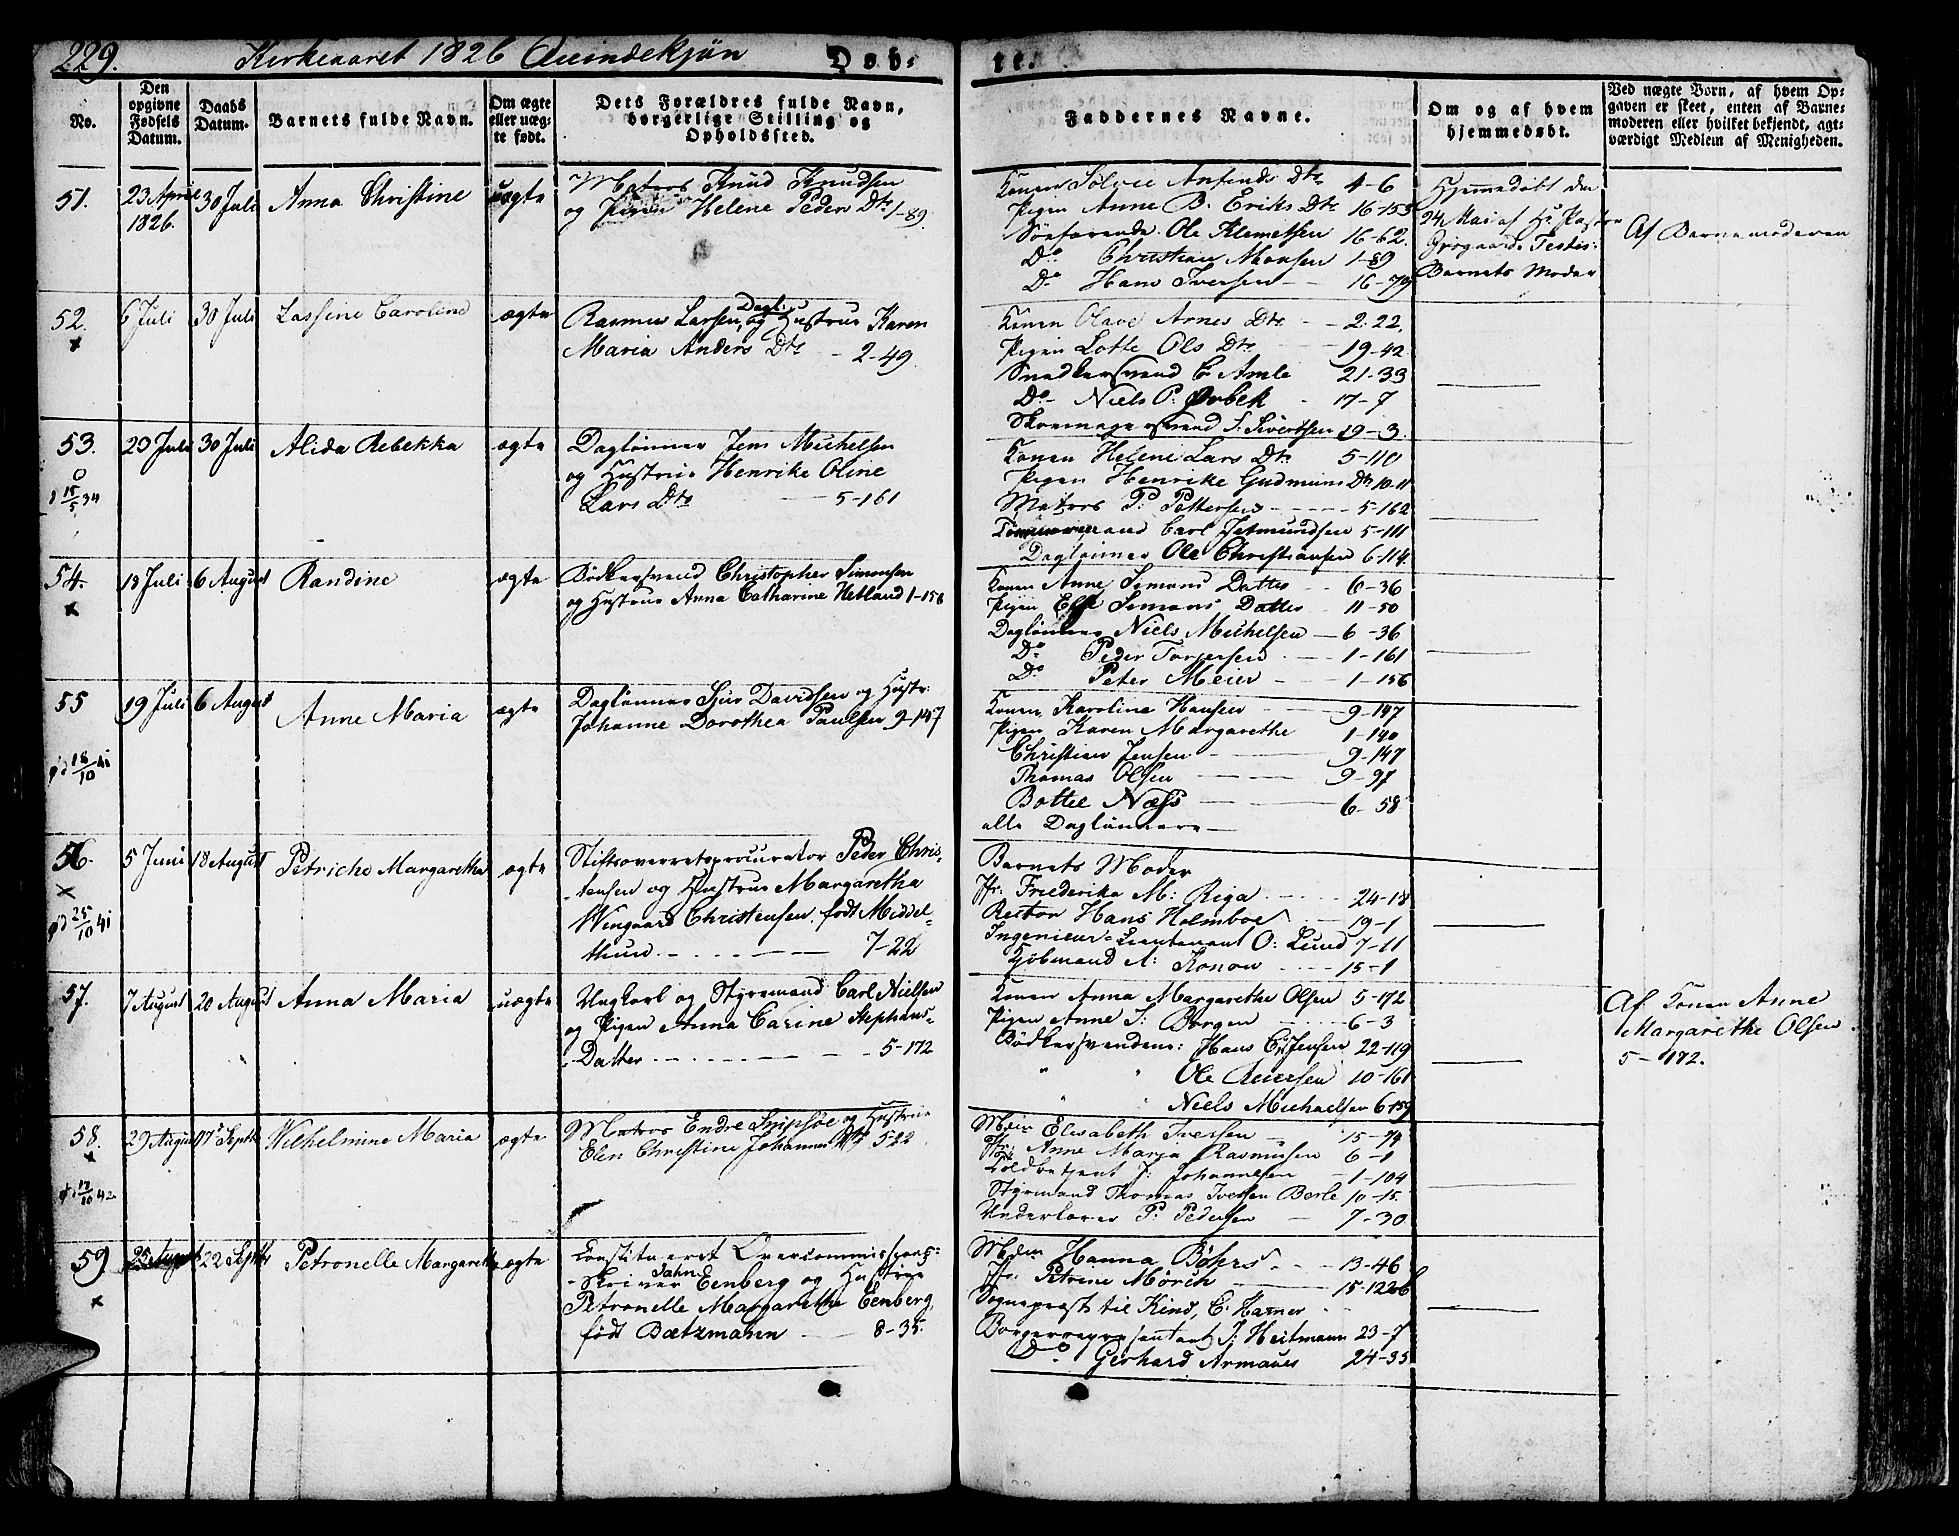 229. Kirkeaaret 1826 Quindekjøn Døb-
te.
No.
Den opgivne Fødsels Datum.
Daabs Datum.
Barnets fulde Navn.
Om ægte eller uægte født.
Dets Forældres fulde Navn, borgerlige Stilling og Opholdssted.
Faddernes Navne.
Om og af hvem hjemmedøbt.
Ved uægte Born, af hvem Opgaven er skeet, enten af Barnemoderen eller hvilket bekjendt, agtværdigt Medlem af Menigheden.
51. 23 April 1826. 30 Juli Anna Christine uægte
Matros Knud Knudsen
og Pigen Helene Peders Dtr 1-89.
Konen Sølvie Anfinds Dtr 4-6
Pigen Anne B. Eriks Dtr 16-153
Søefarende Ole Klemetsen 16-62.
Do Christian Monsen 1-89
Do Hans Iversen 16-79
Hjemmedøbt den
24 Mai af Hr Pastor
Grøgaard. Testis:
Barnets Moder
Af Barnemoderen
52. 6 Juli 30 Juli Lassine Caroline ægte
Rasmus Larsen, Dagl: og Hustrue Karen
Maria Anders Dtr 2-49.
Konen Olave Arnes Dtr 2-22.
Pigen Lotte Ols Dtr 19-42
Snedkersvend C. Amle 21-33
Do Niels P. Ørbek 17-7
Skomagersvend S. Sivertsen 19-3.
53. 20 Juli 30 Juli Alida Rebekka ægte
15/5 34
Daglønner Jens Michelsen
og Hustrue Henrike Oline
Lars Dtr 5-161
Konen Helene Lars Dtr 5-110
Pigen Henrike Gudmuns Dtr 10-11
Matros P. Pettersen 5-162
Tømmermand Carl Jetmundsen 5-111
Daglønner Ole Christiansen 6-114.
54. 18 Juli 6 August Randine ægte
Bødkersvend Christopher Simonsen
og Hustrue Anna Catharine Hetland 1-158
Konen Anne Simons Datter 6-36
Pigen Else Simons Datter 11-50
Daglønner Niels Michelsen 6-36
Do Peder Torgersen 1-161
Do Peter Meier 1-156
55 19 Juli 6 August Anne Maria ægte
18/10 41
Daglønner Sjur Davidsen og Hustr:
Johanne Dorothea Paulsen 9-147
Konen Karoline Hansen 9-147
Pigen Karen Margarethe 1-140
Christian Jensen 9-147
Thomas Olsen 9-97
Bottel Næss 6-58
alle Daglønnere
56. 5 Juni 18 August Petriche Margaretha ægte
25/10 41
Stiftsoverretsprocurator Peder Chris-
tensen og Hustrue Margaretha
Wingaard Christensen født Middel-
thun. 7-22
Barnets Moder
Jfr: Friederika M: Riga 24-18
Rector Hans Holmboe 19-1
Ingenieur-Lieutenant O: Lund 7-11
Kjøbmand A: Konow 15-1
57. 7 August 20 August Anna Maria uægte
Ungkarl og Styrmand Carl Nielsen
og Pigen Anna Carine Stephans-
Datter 5-172
Konen Anna Margarethe Olsen 5-172
Pigen Anne S: Borgen 6-3
Bødkersvendene: Hans Jensen 22-119
Ole Reiersen 10-161
Niels Michaelsen 6-159
Af Konen Anne
Margarethe Olsen
5-172.
58. 29 August 17 Septbr Wilhelmine Maria ægte
17/10 42
Matros Endre Snipsøe og Hustrue
Elen Christine Johannes Dtr 5-22
Elisabeth Iversen 15-79
Anne Maria Rasmusen 6-1
Toldbetjent J: Johannesen 1-104
Styrmand Thomas Iversen Berle 10-15
P: Pedersen 7-30
59 25 August 22 Septbr Petronelle Margaretha ægte
Constitueret Overcommissions-
Skriver Jahn Eenberg og Hustrue
Petronelle Margarethe Eenberg,
født Bætzmann 8-35.
Hanna Bøhrs 13-46
Jfr: Petrine Mørch 15-122b
Sogneprest til Kind, C: Harner
Borgerrepresentant J: Heitmann 23-7
Do Gerhard Armauer 24-35